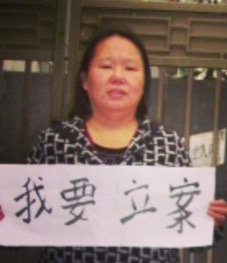 我要立案